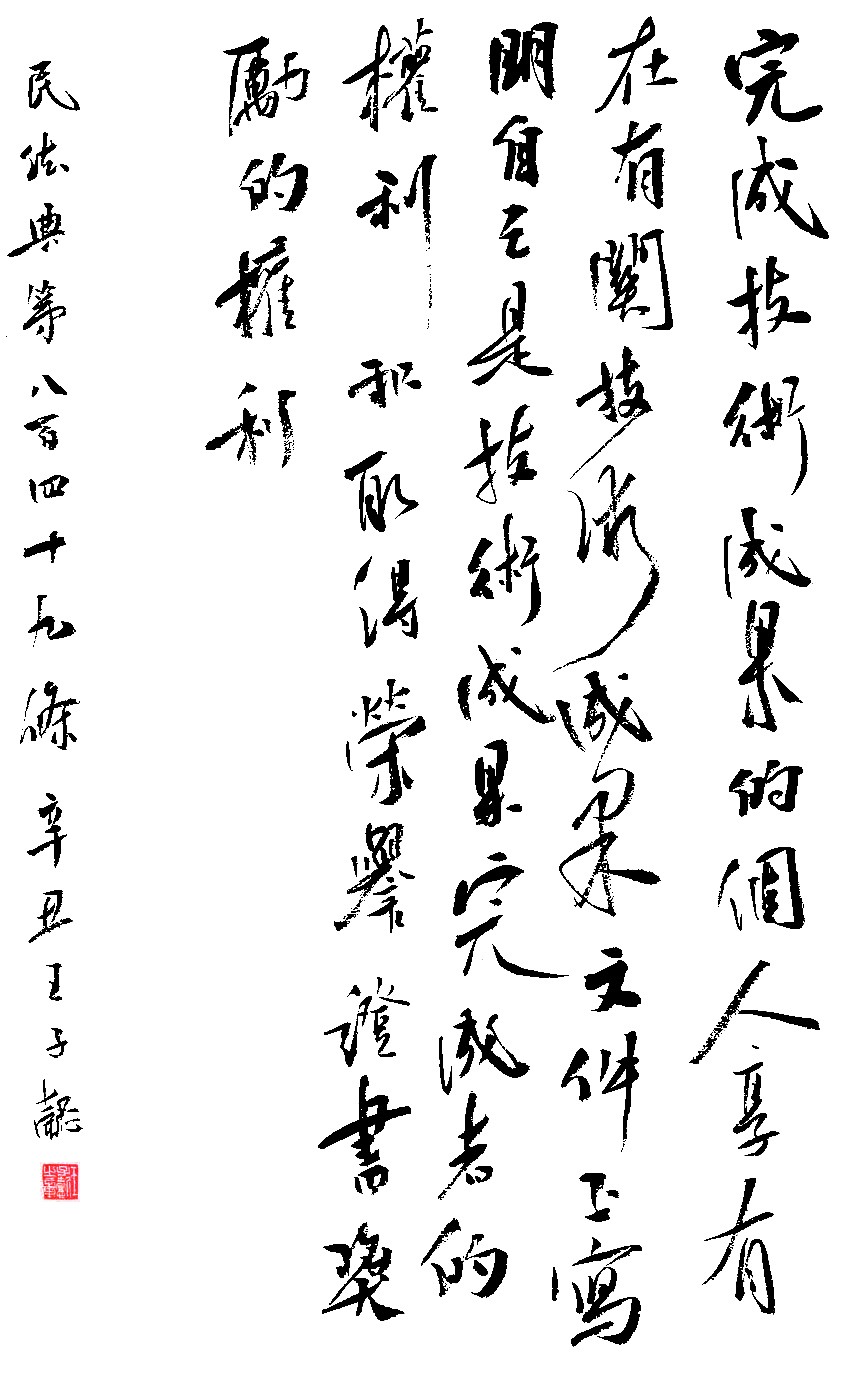 完成技術成果的個人享有
在有關技術成果文件上寫
明自己是技術成果完成者的
權利和取得榮譽證書獎
勵的權利
民法典第八百四十九條 辛丑王子